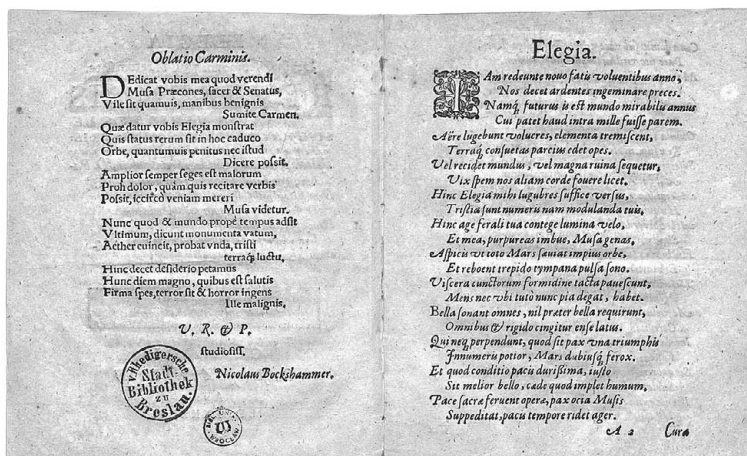 Oblatio Carminis.
DEdicat vobis mea quod verendi
Musa Præcones, sacer & Senatus,
Vile sit quamuis, manibus benignis
Sumite Carmen.
Quæ datur vobis Elegia monstrat
Quis status rerum sit in hoc caduco
Orbe, quantumuis penitus nec istud
Dicere possit.
Amplior semper seges est malorum
Proh dolor, quàm quis recitare verbis
Possit, iccirco veniam mereri
Musa videtur.
Nunc quod & mundo propè tempus adsit
Vltimum, dicunt monumenta vatum,
Aether euincit, probat vnda, tristi
terraq; luctu,
Hinc decet desiderio petamus
Hunc diem magno, quibus est salutis
Firma spes, terror sit & horror ingens
Ille malignis.
V. R. & P.
studiosiss.
Nicolaus Bockshammer.
v. Rhedigersche
Stadt-
Bibliothek
zu
Breslau.
Elegia.
IAm redeunte nouo fatis voluentibus anno,
Nos decet ardentes ingeminare preces.
Namq; futurus is est mundo mirabilis annus
Cui patet haud intra mille fuisse parem.
Aëre lugebunt volucres, elementa tremiscent,
Terraq; consuetas parcius edet opes.
Vel recidet mundus, vel magna ruina sequetur,
Vix spem nos aliam corde fouere licet.
Hinc Elegia mihi lugubres suffice versus,
Tristia sunt numeris nam modulanda tuis.
Hinc age ferali tua contege lumina velo,
Et mea, purpureas imbue, Musa genas.
Aspicis vt toto Mars sæuiat impius orbe,
Et reboent trepido tympana pulsa sono.
Viscera cunctorum formidine tacta pauescunt,
Mens nec vbi tutò nunc pia degat, habet.
Bella sonant omnes, nil præter bella requirunt,
Omnibus & rigido cingitur ense latus.
Qui neq; perpendunt, quod sit pax vna triumphis
Innumeris potior, Mars dubiusq; ferox.
Et quod conditio pacis durissima, iusto
Sit melior bello, cæde quod implet humum.
Pace sacræ feruent operæ, pax ocia Musis
Suppeditat, pacis tempore ridet ager.
A 2 Cura